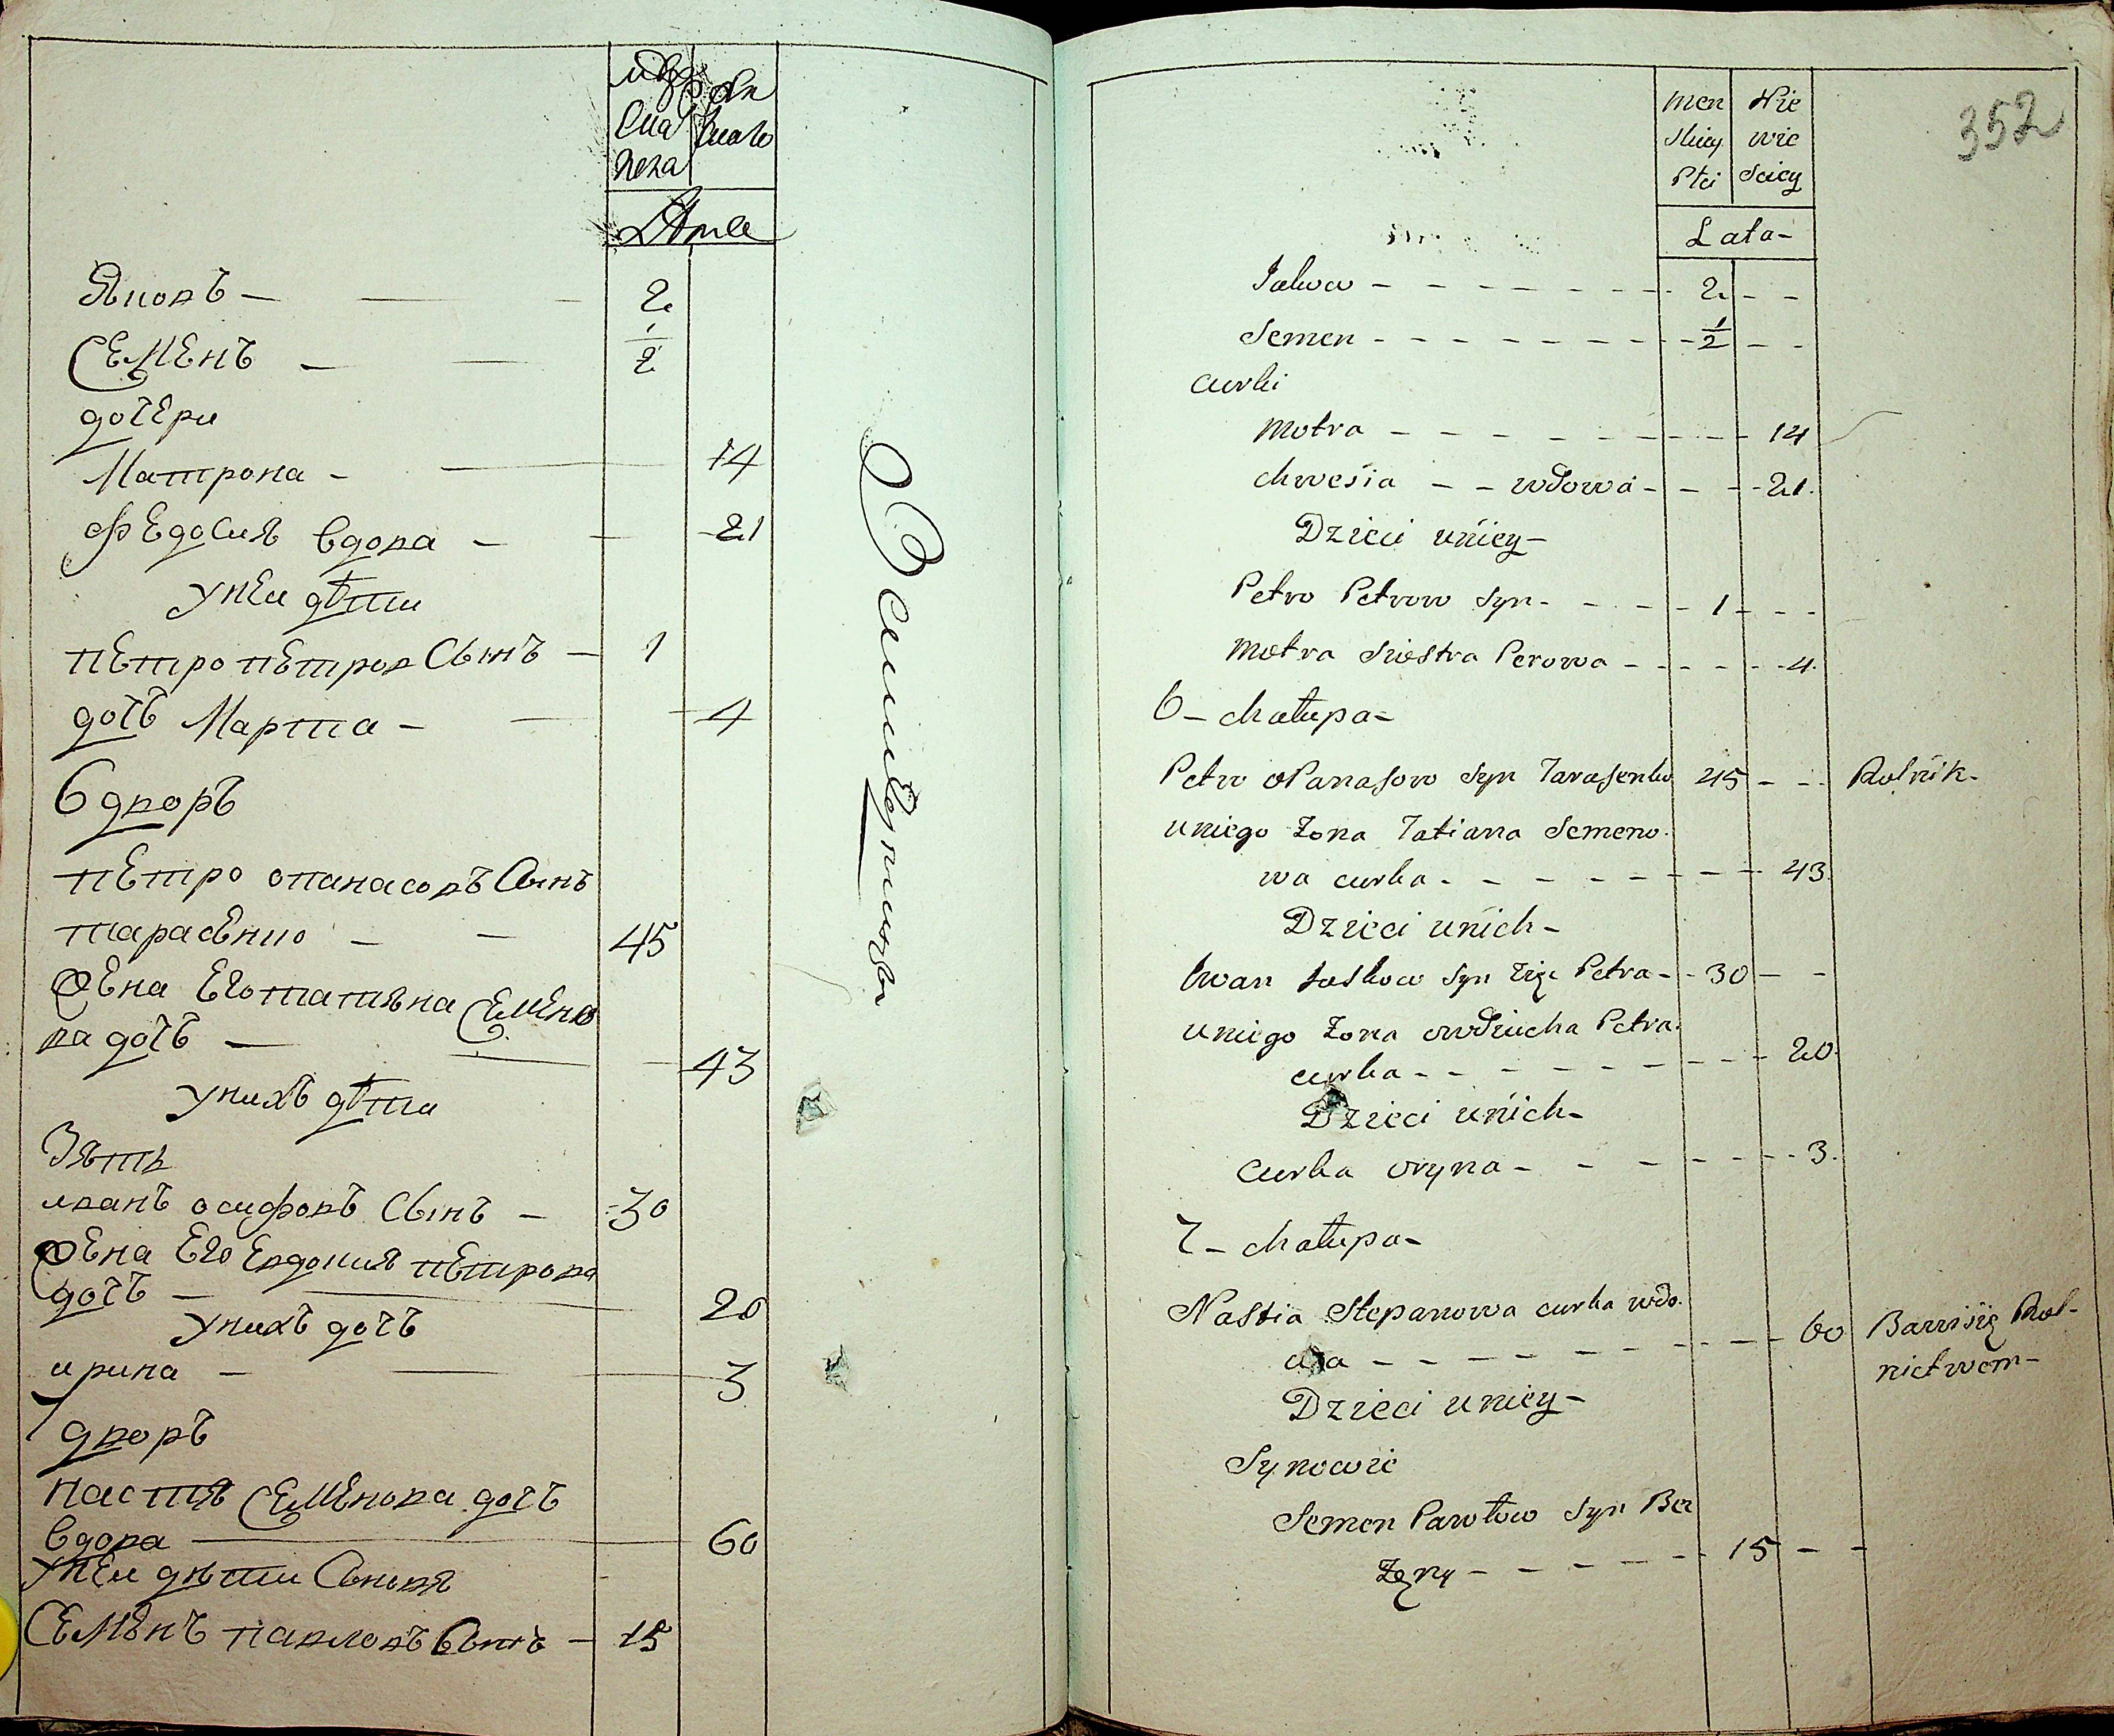 Яковъ — 2
Семенъ — 1/2
дочери
Матрона — 14
Федосия вдова — 21
у ней дѣти
петро петров Сынъ — 1
дочъ Марта — 4
6 дворъ
петро опанасовъ Сынъ
тарасенко — 45
жена Его татияна Семено
ва дочъ — 43
у нихъ дѣти
Зять
иванъ осифовъ Сынъ — 30
жена Его Евдокия петрова
дочъ — 20
у нихъ дочъ
ирина — 3
7 дворъ
настя Семенова дочъ
вдова — 60
у ней дѣти Сыновя
Семенъ павловъ Сынъ — 15
Лета
352
Men Nie
skiey wie
Płci sciey
Lata
Jakow - 2
Semen - 1/2
curki
Motra - 14
chwesia - wdowa - 21
Dzieci uniey
Petro Petrow syn - 1
Motra siostra Perowa - 4
6 - chałupa -
Petro oPanasow syn Tarasenko 45 - Rolnik
uniego żona Tatiana Semeno
wa curka - 43
Dzieci unich -
Iwan Joskow syn zięc Petra - 30
uniego żona owdiucha Petra
curka - 20
Dzieci unich -
curka oryna - 3
7 - chałupa -
Nastia Stepanowa curka wdo
wa - 60 Bawi się Rol-
nictwem -
Dzieci uniey -
Synowie
Semen Pawłow syn Bez
żęny - 15